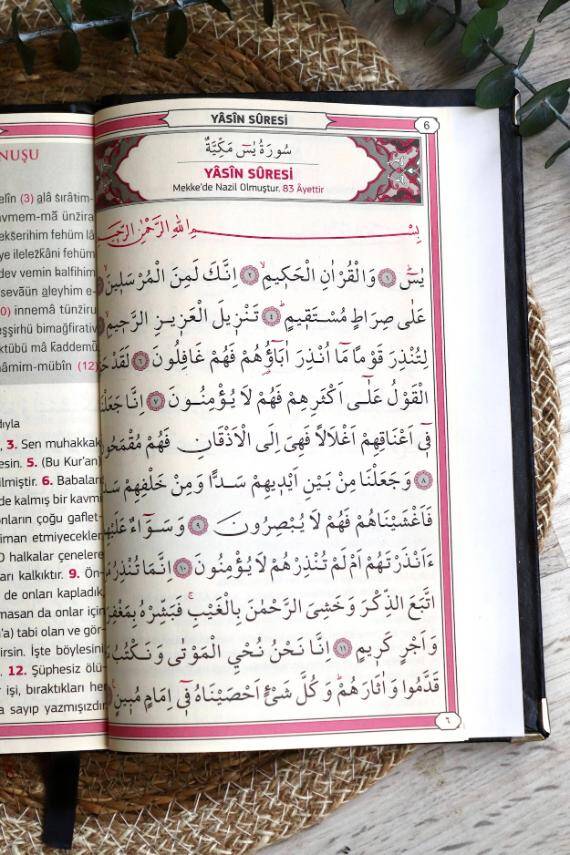 YÂSÎN SÛRESİ
6
سُورَةُ يٰسٓ مَكِّيَّةٌ
YÂSÎN SÛRESİ
Mekke'de Nazil Olmuştur. 83 Âyettir
بِسْمِ اللهِ الرَّحْمٰنِ الرَّحِيمِ
يٰسٓ ۚ ﴿١﴾ وَالْقُرْاٰنِ الْحَكِيمِ ۙ ﴿٢﴾ اِنَّكَ لَمِنَ الْمُرْسَلِينَ ۙ
عَلٰى صِرَاطٍ مُسْتَقِيمٍ ۜ ﴿٤﴾ تَنْزِيلَ الْعَزِيزِ الرَّحِيمِ ۙ
لِتُنْذِرَ قَوْمًا مَٓا اُنْذِرَ اٰبَٓاؤُ۬هُمْ فَهُمْ غَافِلُونَ ﴿٦﴾ لَقَدْ
الْقَوْلُ عَلٰٓى اَكْثَرِهِمْ فَهُمْ لَا يُؤْمِنُونَ ﴿٧﴾ اِنَّا جَعَلْنَا
فٓي اَعْنَاقِهِمْ اَغْلَالًا فَهِيَ اِلَى الْاَذْقَانِ فَهُمْ مُقْمَحُونَ
﴿٨﴾ وَجَعَلْنَا مِنْ بَيْنِ اَيْدِيهِمْ سَدًّا وَمِنْ خَلْفِهِمْ
فَاَغْشَيْنَاهُمْ فَهُمْ لَا يُبْصِرُونَ ﴿٩﴾ وَسَوَٓاءٌ عَلَيْهِمْ
ءَاَنْذَرْتَهُمْ اَمْ لَمْ تُنْذِرْهُمْ لَا يُؤْمِنُونَ ﴿١٠﴾ اِنَّمَا تُنْذِرُ
اتَّبَعَ الذِّكْرَ وَخَشِيَ الرَّحْمٰنَ بِالْغَيْبِ ۚ فَبَشِّرْهُ
وَاَجْرٍ كَرِيمٍ ﴿١١﴾ اِنَّا نَحْنُ نُحْيِ الْمَوْتٰى وَنَكْتُبُ
قَدَّمُوا وَاٰثَارَهُمْ ۜ وَكُلَّ شَيْءٍ اَحْصَيْنَاهُ فٓي اِمَامٍ مُبِينٍ
٦
NUŞU
elîn (3) ɑlâ sırâtim-
ekšerihim fehüm lâ
ye ilelezkâni fehüm
dev vemin halfihim
sevâün aleyhim e-
innemâ tünziru
eşşirhü bimağfirativ
ktübü mâ kaddemû
mâmim-mübîn (12)
3. Sen muhakkak
esin. 5. (Bu Kur'an)
ilmiştir. 6. Babaları
de kalmış bir kavmi
onların çoğu gaflet-
iman etmiyecekler
halkalar çenelere
arı kalkıktır. 9. Ön-
de onları kapladık,
masan da onlar için
tabi olan ve gör-
irsin. İşte böylesini
12. Şüphesiz ölü-
işi, bıraktıkları her
a sayıp yazmışızdır